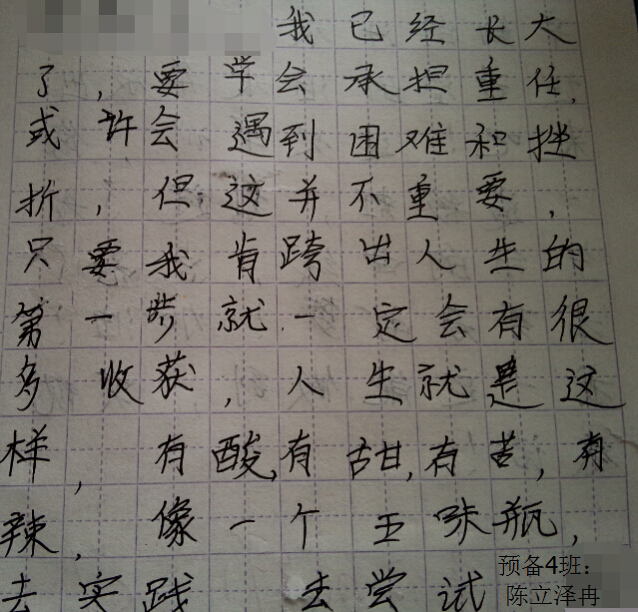 我已经长大
了，要学会承担重任，
或许会遇到困难和挫
折，但这并不重要，
只要我肯跨出人生的
第一步就一定会有很
多收获，人生就是这
样，有酸，有甜，有苦，有
辣，像一个五味瓶，
去实践 去尝试
预备4班：
陈立泽冉